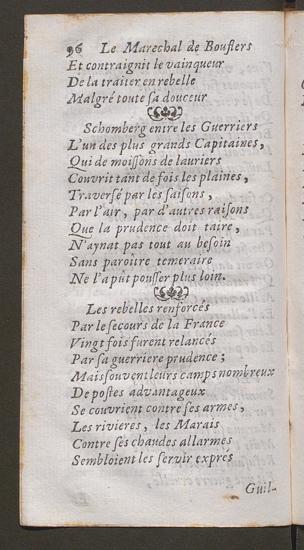 96 Le Marechal de Bouflers
Et contraignit le vainqueur
De la traiter en rebelle
Malgré toute ſa douceur
Schomberg entre les Guerriers
L'un des plus grands Capitaines,
Qui de moiſſons de lauriers
Couvrit tant de fois les plaines,
Traverſé par les ſaiſons,
Par l'air, par d'autres raiſons
Que la prudence doit taire,
N'aynat pas tout au beſoin
Sans paroître temeraire
Ne l'a pût pouſſer plus loin.
Les rebelles renforcés
Par le ſecours de la France
Vingt fois furent relancés
Par ſa guerriere prudence;
Mais ſouvent leurs camps nombreux
De poſtes advantageux
Se couvrient contre ſes armes,
Les rivieres, les Marais
Contre ſes chaudes allarmes
Sembloient les ſervir exprés
Guil-